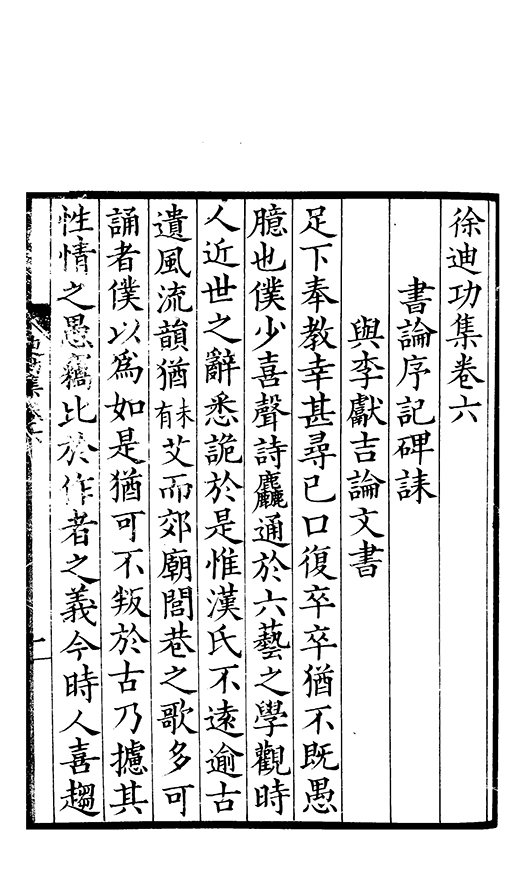 徐迪功集卷六
書論序記碑誄
與李獻吉論文書
足下奉教幸甚尋已口復卒卒猶不既愚
臆也僕少喜聲詩麤通於六藝之學觀時
人近世之辭悉詭於是惟漢氏不遠逾古
遺風流韻猶未有艾而郊廟閭巷之歌多可
誦者僕以爲如是猶可不叛於古乃攄其
性情之愚竊比於作者之義今時人喜趨